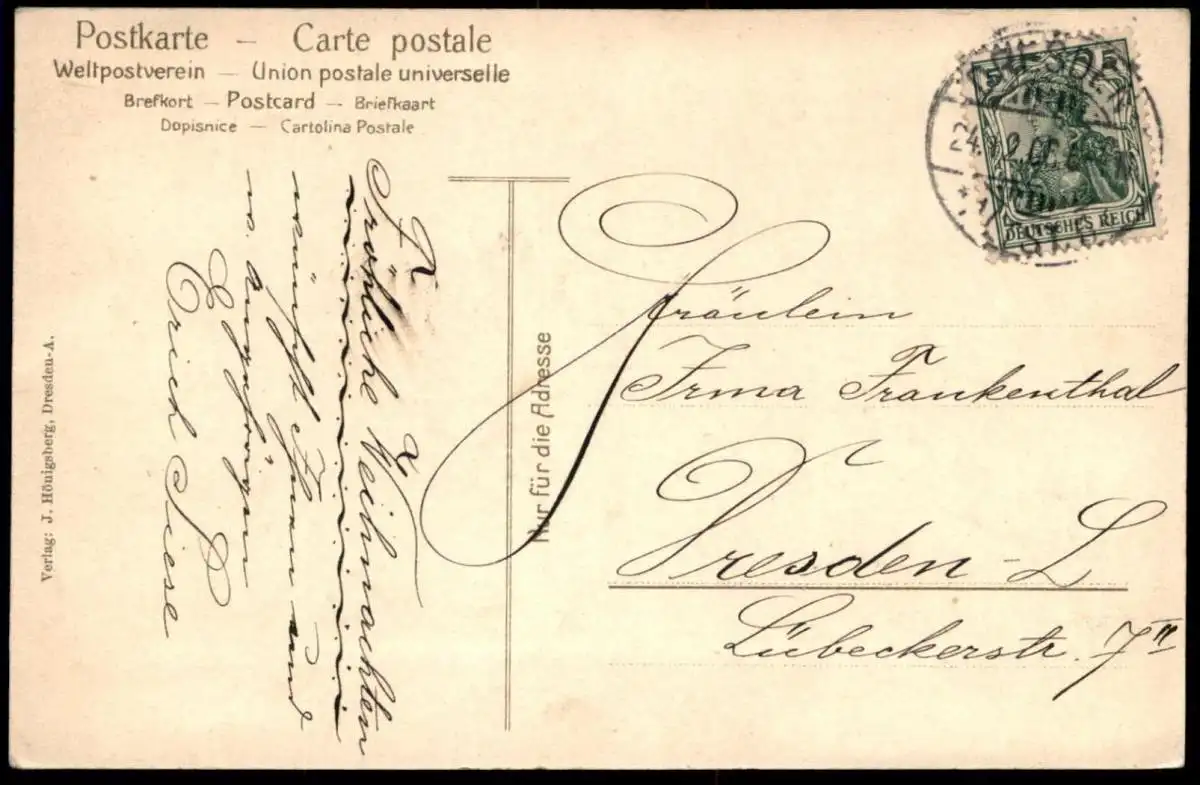 Postkarte — Carte postale
Weltpostverein — Union postale universelle
Brefkort — Postcard — Briefkaart
Dopisnice — Cartolina Postale
Fröhliche Weihnachten
wünscht Ihnen und
w. Angehörigen
Erich Siese
Verlag: J. Hönigsberg, Dresden-A.
Nur für die Adresse
5 5
DRESDEN
24.12.
DEUTSCHES REICH
Fräulein
Irma Frankenthal
Dresden-L
Lübeckerstr. 7 II